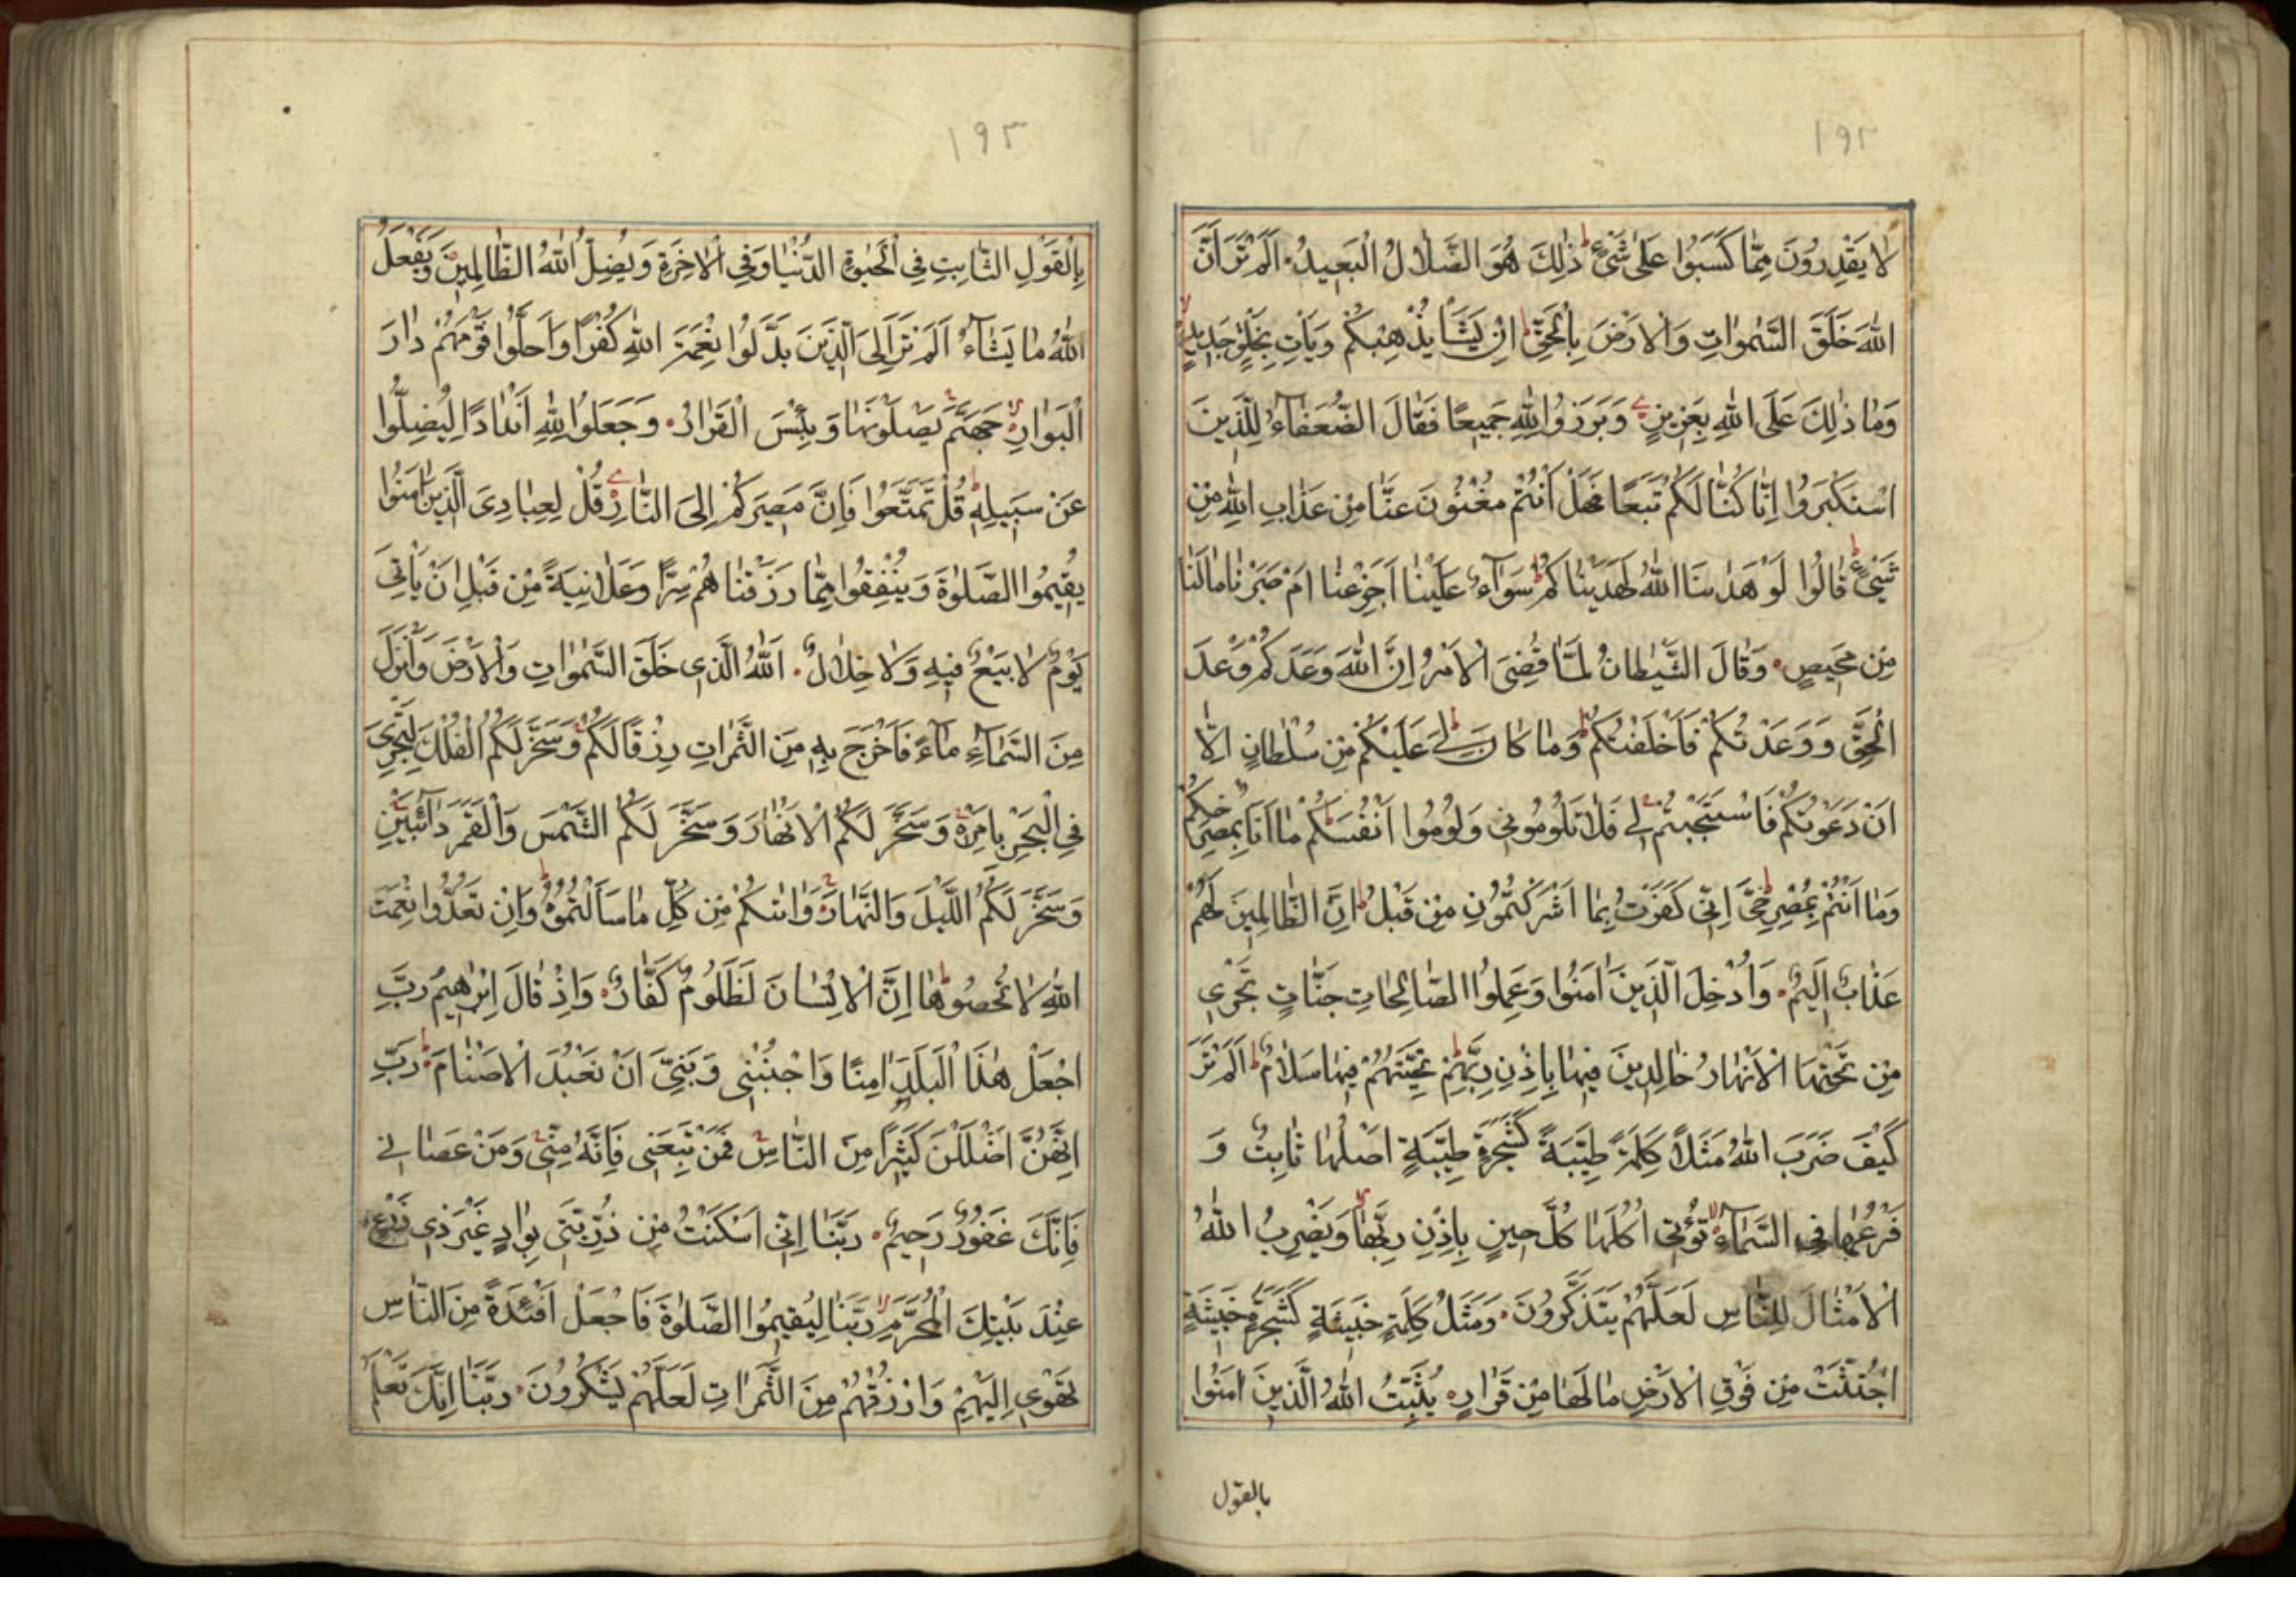 ١٩٢
لا يَقْدِرُونَ مِمَّا كَسَبُوا عَلٰى شَيْءٍ ط ذٰلِكَ هُوَ الضَّلالُ الْبَعِيدُ اَلَمْ تَرَ اَنَّ
اللهَ خَلَقَ السَّمٰوَاتِ وَالْاَرْضَ بِالْحَقِّ ط اِنْ يَشَأْ يُذْهِبْكُمْ وَيَأْتِ بِخَلْقٍ جَدِيدٍ لا
وَمَا ذٰلِكَ عَلَى اللهِ بِعَزِيزٍ وَبَرَزُوا لِلهِ جَمِيعًا فَقَالَ الضُّعَفَاءُ لِلَّذِينَ
اسْتَكْبَرُوا اِنَّا كُنَّا لَكُمْ تَبَعًا فَهَلْ اَنْتُمْ مُغْنُونَ عَنَّا مِنْ عَذَابِ اللهِ مِنْ
شَيْءٍ ط قَالُوا لَوْ هَدٰىنَا اللهُ لَهَدَيْنَاكُمْ ط سَوَاءٌ عَلَيْنَا اَجَزِعْنَا اَمْ صَبَرْنَا مَا لَنَا
مِنْ مَحِيصٍ وَقَالَ الشَّيْطَانُ لَمَّا قُضِيَ الْاَمْرُ اِنَّ اللهَ وَعَدَكُمْ وَعْدَ
الْحَقِّ وَوَعَدْتُكُمْ فَاَخْلَفْتُكُمْ ط وَمَا كَانَ لِيَ عَلَيْكُمْ مِنْ سُلْطَانٍ اِلَّا
اَنْ دَعَوْتُكُمْ فَاسْتَجَبْتُمْ لِي فَلا تَلُومُونِي وَلُومُوا اَنْفُسَكُمْ ط مَا اَنَا بِمُصْرِخِكُمْ
وَمَا اَنْتُمْ بِمُصْرِخِيَّ ط اِنِّي كَفَرْتُ بِمَا اَشْرَكْتُمُونِ مِنْ قَبْلُ ط اِنَّ الظَّالِمِينَ لَهُمْ
عَذَابٌ اَلِيمٌ وَاُدْخِلَ الَّذِينَ اٰمَنُوا وَعَمِلُوا الصَّالِحَاتِ جَنَّاتٍ تَجْرِي
مِنْ تَحْتِهَا الْاَنْهَارُ خَالِدِينَ فِيهَا بِاِذْنِ رَبِّهِمْ ط تَحِيَّتُهُمْ فِيهَا سَلَامٌ ط اَلَمْ تَرَ
كَيْفَ ضَرَبَ اللهُ مَثَلًا كَلِمَةً طَيِّبَةً كَشَجَرَةٍ طَيِّبَةٍ اَصْلُهَا ثَابِتٌ وَ
فَرْعُهَا فِي السَّمَاءِ لا تُؤْتِي اُكُلَهَا كُلَّ حِينٍ بِاِذْنِ رَبِّهَا وَيَضْرِبُ اللهُ
الْاَمْثَالَ لِلنَّاسِ لَعَلَّهُمْ يَتَذَكَّرُونَ وَمَثَلُ كَلِمَةٍ خَبِيثَةٍ كَشَجَرَةٍ خَبِيثَةٍ
اجْتُثَّتْ مِنْ فَوْقِ الْاَرْضِ مَا لَهَا مِنْ قَرَارٍ يُثَبِّتُ اللهُ الَّذِينَ اٰمَنُوا
بالقول
١٩٣
بِالْقَوْلِ الثَّابِتِ فِي الْحَيٰوةِ الدُّنْيَا وَفِي الْاٰخِرَةِ وَيُضِلُّ اللهُ الظَّالِمِينَ وَيَفْعَلُ
اللهُ مَا يَشَاءُ اَلَمْ تَرَ اِلَى الَّذِينَ بَدَّلُوا نِعْمَةَ اللهِ كُفْرًا وَاَحَلُّوا قَوْمَهُمْ دَارَ
الْبَوَارِ لا جَهَنَّمَ يَصْلَوْنَهَا وَبِئْسَ الْقَرَارُ وَجَعَلُوا لِلهِ اَنْدَادًا لِيُضِلُّوا
عَنْ سَبِيلِهِ ط قُلْ تَمَتَّعُوا فَاِنَّ مَصِيرَكُمْ اِلَى النَّارِ قُلْ لِعِبَادِيَ الَّذِينَ اٰمَنُوا
يُقِيمُوا الصَّلٰوةَ وَيُنْفِقُوا مِمَّا رَزَقْنَاهُمْ سِرًّا وَعَلَانِيَةً مِنْ قَبْلِ اَنْ يَأْتِيَ
يَوْمٌ لا بَيْعٌ فِيهِ وَلا خِلَالٌ اَللهُ الَّذِي خَلَقَ السَّمٰوَاتِ وَالْاَرْضَ وَاَنْزَلَ
مِنَ السَّمَاءِ مَاءً فَاَخْرَجَ بِهِ مِنَ الثَّمَرَاتِ رِزْقًا لَكُمْ وَسَخَّرَ لَكُمُ الْفُلْكَ لِتَجْرِيَ
فِي الْبَحْرِ بِاَمْرِهِ وَسَخَّرَ لَكُمُ الْاَنْهَارَ وَسَخَّرَ لَكُمُ الشَّمْسَ وَالْقَمَرَ دَائِبَيْنِ
وَسَخَّرَ لَكُمُ اللَّيْلَ وَالنَّهَارَ وَاٰتٰىكُمْ مِنْ كُلِّ مَا سَاَلْتُمُوهُ ط وَاِنْ تَعُدُّوا نِعْمَتَ
اللهِ لا تُحْصُوهَا ط اِنَّ الْاِنْسَانَ لَظَلُومٌ كَفَّارٌ وَاِذْ قَالَ اِبْرٰهِيمُ رَبِّ
اجْعَلْ هٰذَا الْبَلَدَ اٰمِنًا وَاجْنُبْنِي وَبَنِيَّ اَنْ نَعْبُدَ الْاَصْنَامَ ط رَبِّ
اِنَّهُنَّ اَضْلَلْنَ كَثِيرًا مِنَ النَّاسِ فَمَنْ تَبِعَنِي فَاِنَّهُ مِنِّي وَمَنْ عَصَانِي
فَاِنَّكَ غَفُورٌ رَحِيمٌ رَبَّنَا اِنِّي اَسْكَنْتُ مِنْ ذُرِّيَّتِي بِوَادٍ غَيْرِ ذِي زَرْعٍ
عِنْدَ بَيْتِكَ الْمُحَرَّمِ لا رَبَّنَا لِيُقِيمُوا الصَّلٰوةَ فَاجْعَلْ اَفْئِدَةً مِنَ النَّاسِ
تَهْوِي اِلَيْهِمْ وَارْزُقْهُمْ مِنَ الثَّمَرَاتِ لَعَلَّهُمْ يَشْكُرُونَ رَبَّنَا اِنَّكَ تَعْلَمُ